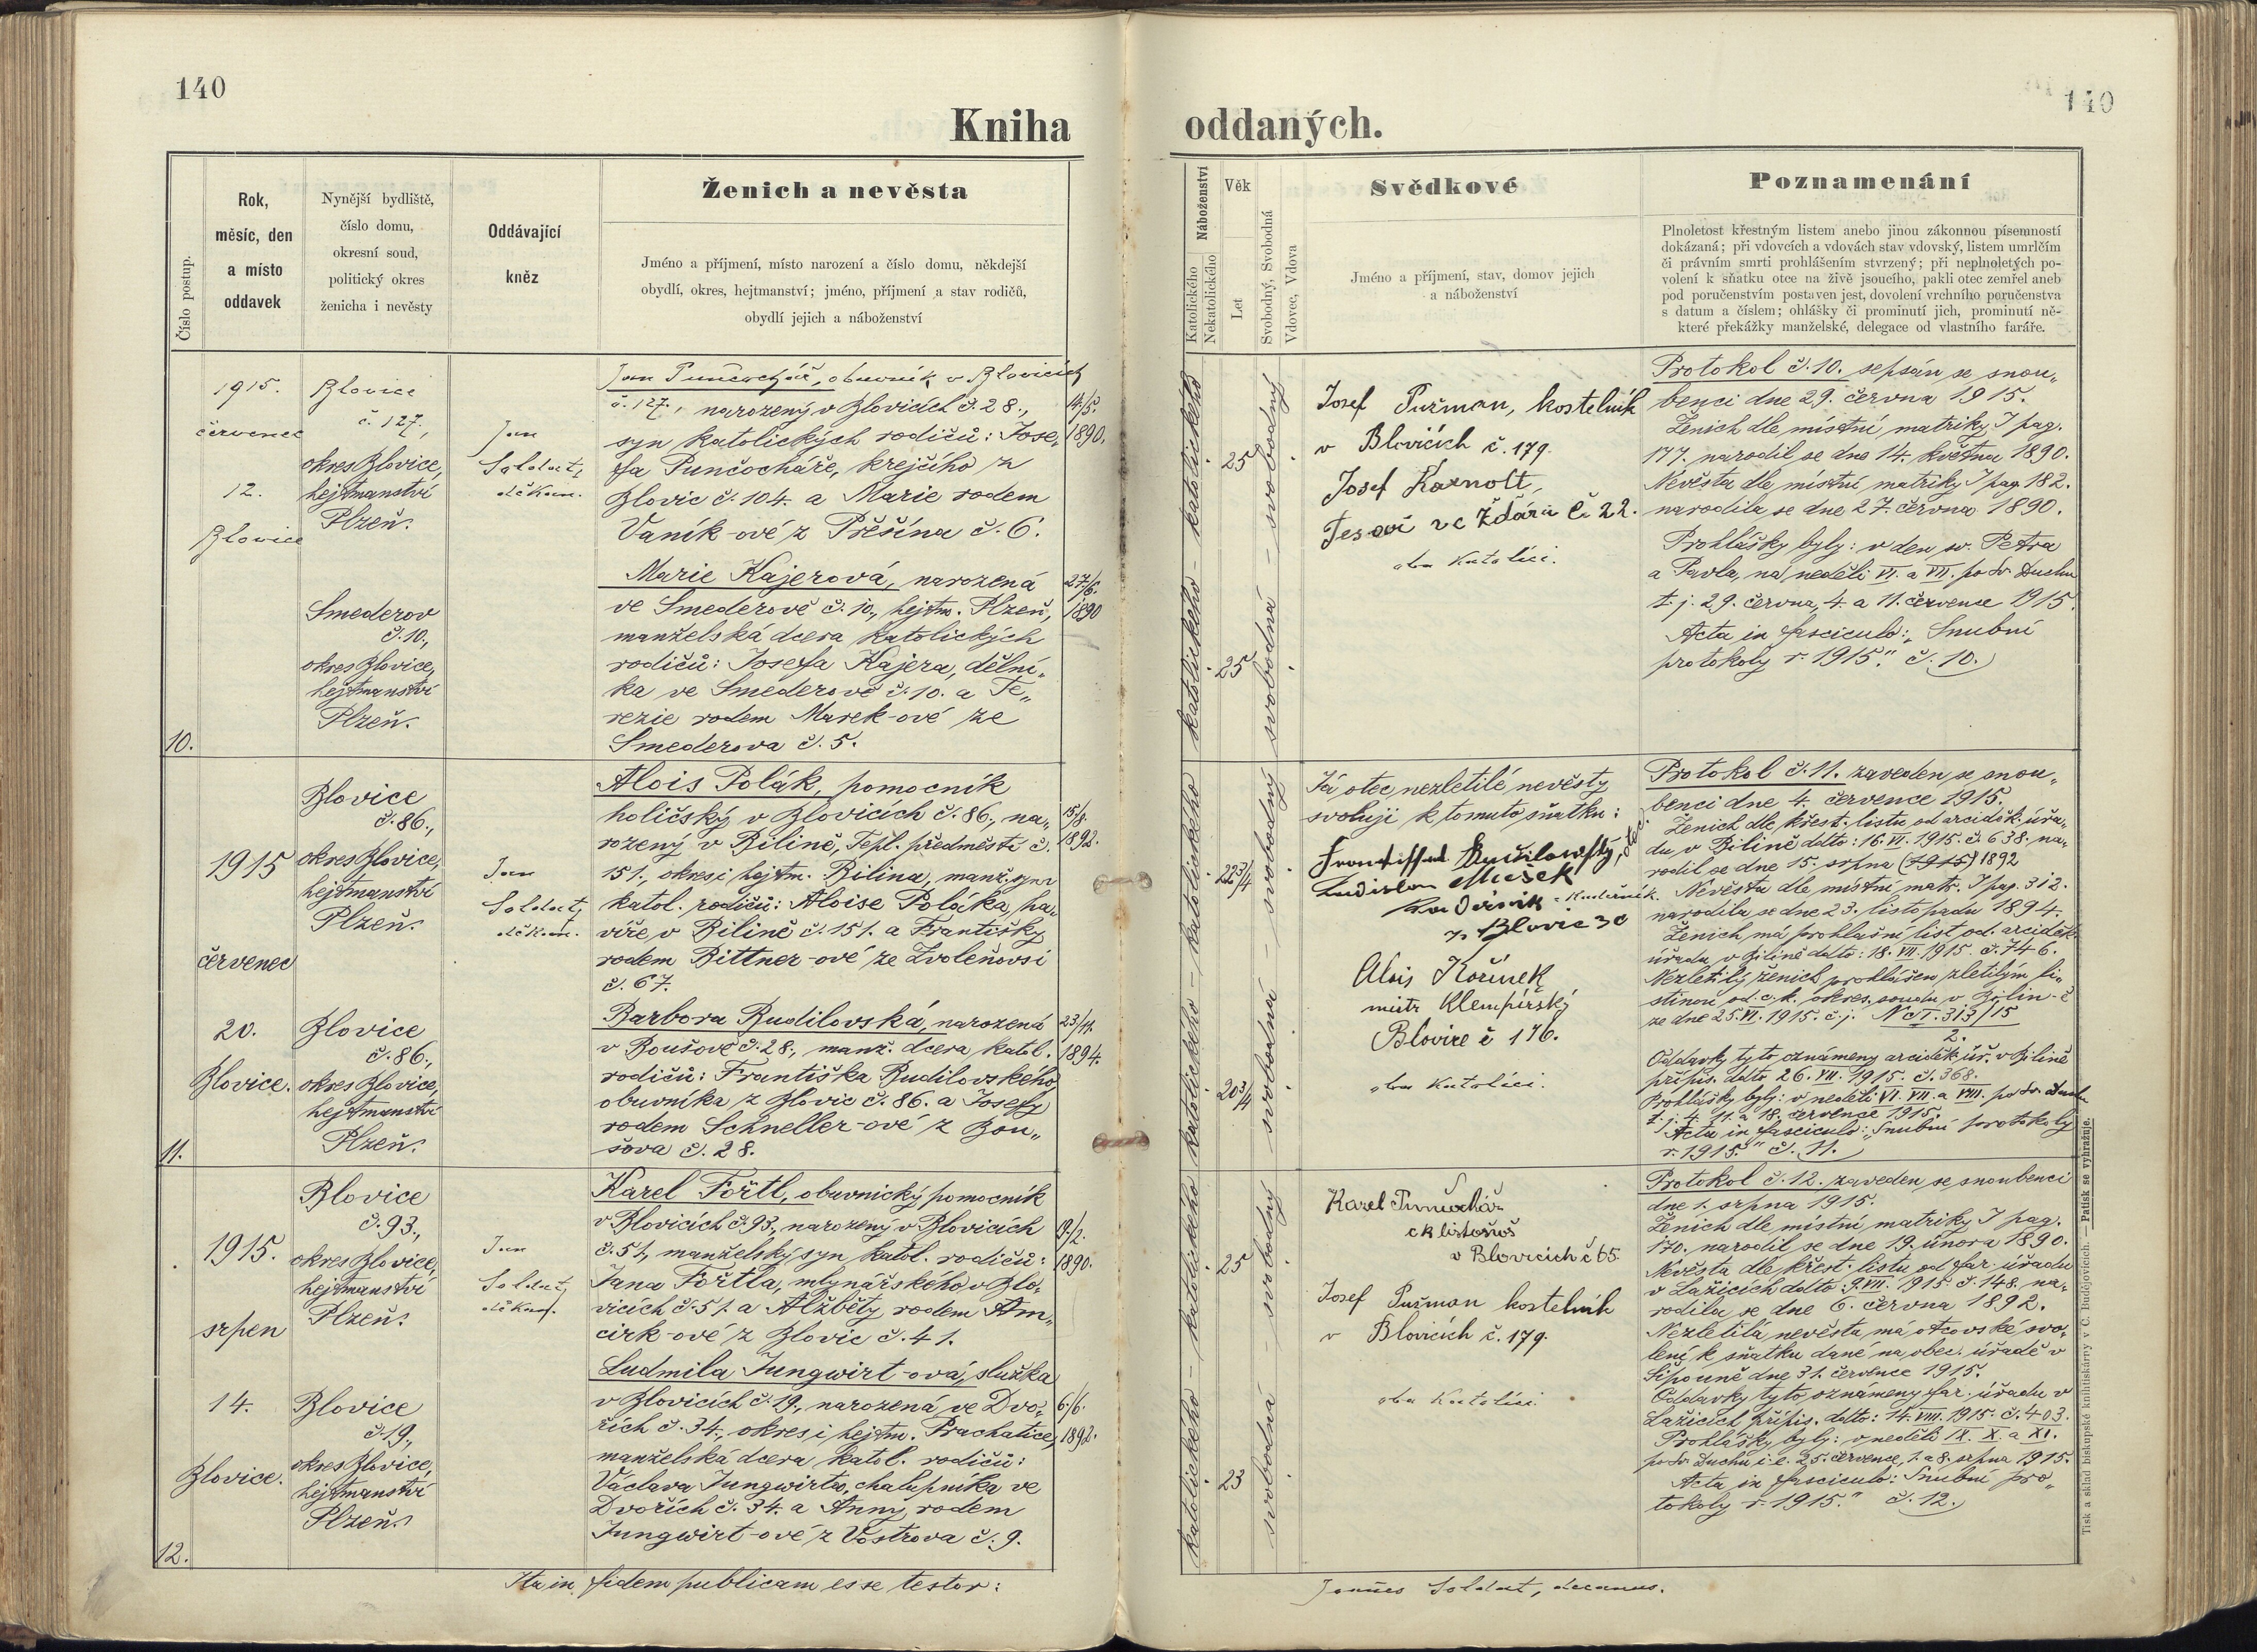 140
Kniha
Číslo postup.
Rok,
měsíc, den
a místo
oddavek
Nynější bydliště,
číslo domu,
okresní soud,
politický okres
ženicha i nevěsty
Oddávající
kněz
Ženich a nevěsta
Jméno a příjmení, místo narození a číslo domu, někdejší
obydlí, okres, hejtmanství; jméno, příjmení a stav rodičů,
obydlí jejich a náboženství
10.
1915.
červenec
12.
Blovice
Blovice
č. 127.,
okres Blovice,
hejtmanství
Plzeň.
Smederov
č. 10.,
okres Blovice,
hejtmanství
Plzeň.
Jan
Soldát,
děkan.
Jan Punčochář, obuvník v Blovicích
č. 127., narozený v Blovicích č. 28.,
syn katolických rodičů: Jose-
fa Punčocháře, krejčího z
Blovic č. 104. a Marie rodem
Vaník-ové z Přešína č. 6.
14/5.
1890.
Marie Kajerová, narozená
ve Smederově č. 10., hejtm. Plzeň,
manželská dcera katolických
rodičů: Josefa Kajera, dělní-
ka ve Smederově č. 10. a Te-
rezie rodem Marek-ové ze
Smederova č. 5.
27/6.
1890
11.
1915
červenec
20.
Blovice.
Blovice
č. 86.,
okres Blovice,
hejtmanství
Plzeň.
Blovice
č. 86.,
okres Blovice,
hejtmanství
Plzeň.
Jan
Soldát,
děkan.
Alois Polák, pomocník
holičský v Blovicích č. 86., na-
rozený v Bilině, Tepl. předměstí č.
151., okres i hejtm. Bilina, manž. syn
katol. rodičů: Aloise Poláka, ha-
víře v Bilině č. 151. a Františky
rodem Bittner-ové ze Zvoleňovsi
č. 67.
15/8.
1892.
Barbora Rudilovská, narozená
v Boušově č. 28., manž. dcera katol.
rodičů: Františka Rudilovského,
obuvníka z Blovic č. 86. a Josefy
rodem Schneller-ové z Bou-
šova č. 28.
23/11.
1894.
12.
1915.
srpen
14.
Blovice.
Blovice
č. 93.,
okres Blovice,
hejtmanství
Plzeň.
Blovice
č. 19.,
okres Blovice,
hejtmanství
Plzeň.
Jan
Soldát,
děkan.
Karel Förtl, obuvnický pomocník
v Blovicích č. 93., narozený v Blovicích
č. 51., manželský syn katol. rodičů:
Jana Förtla, mlynářského v Blo-
vicích č. 51. a Alžběty, rodem Am-
cirk-ové z Blovic č. 41.
19/2.
1890.
Ludmila Jungwirt-ová, služka
v Blovicích č. 19., narozená ve Dvo-
řích č. 34., okres i hejtm. Prachatice,
manželská dcera katol. rodičů:
Václava Jungwirta, chalupníka ve
Dvořích č. 34. a Anny, rodem
Jungwirt-ové z Vostrova č. 9.
6./6.
1892.
Ita in fidem publicam esse testor:
140
oddaných.
Náboženství
Katolického
Nekatolického
Věk
Let
Svobodný, Svobodná
Vdovec, Vdova
Svědkové
Jméno a příjmení, stav, domov jejich
a náboženství
Poznamenání
Plnoletost křestným listem anebo jinou zákonnou písemností
dokázaná; při vdovcích a vdovách stav vdovský, listem umrlčím
či právním smrti prohlášením stvrzený; při neplnoletých po-
volení k sňatku otce na živě jsoucího, pakli otec zemřel aneb
pod poručenstvím postaven jest, dovolení vrchního poručenstva
s datum a číslem; ohlášky či prominutí jich, prominutí ně-
které překážky manželské, delegace od vlastního faráře.
katolického - katolického
25
25
svobodná - svobodný
Josef Pužman, kostelník
v Blovicích č. 179.
Josef Karnolt,
Tesař ve Žďáru č. 22.
oba katolíci.
Protokol č. 10. sepsán se snou-
benci dne 29. června 1915.
Ženich dle místní matriky I pag.
177. narodil se dne 14. května 1890.
Nevěsta dle místní matriky I pag. 182.
narodila se dne 27. června 1890.
Prohlášky byly: v den sv. Petra
a Pavla, na neděli VI. a VII. po sv. Duchu
t. j. 29. června, 4. a 11. července 1915.
Acta in fasciculo: „Snubní
protokoly r. 1915." č. 10.
katolického - katolického
22 3/4
20 3/4
svobodná - svobodný
Já otec nezletilé nevěsty
svoluji k tomuto sňatku:
Ladislav Mušek
z Blovic 30
Alois Kořínek
mistr klempířský
Blovice č 176.
oba katolíci.
Protokol č. 11. zaveden se snou-
benci dne 4. července 1915.
Ženich dle křest. listu od arciděk. úřa-
du v Bilině ddto: 16. VI. 1915. č. 638. na-
rodil se dne 15. srpna (1915) 1892
Nevěsta dle místní matr. I pag. 312.
narodila se dne 23. listopadu 1894.
Ženich má prohlašní list od arciděk.
úřadu v Bilině ddto: 18. VII. 1915. č. 746.
Nezletilý ženich prohlášen zletilým li-
stinou od c. k. okres. soudu v Bilin-ě
ze dne 25. VI. 1915. č. j. Nc I. 313/15
2.
Oddavky tyto oznámeny arciděk. úř. v Bilině
přípis. ddto 26. VII. 1915. č. 368.
Prohlášky byly: v neděli VI. VII. a VIII. po sv. Duchu
t. j. 4. 11. a 18. července 1915.
Acta in fasciculo: „Snubní protokoly
r. 1915." č. 11.
katolického - katolického
25
23
svobodná - svobodný
Karel Punčochář
ck listonoš
v Blovicích č 65.
Josef Pužman kostelník
v Blovicích č. 179.
oba katolíci.
Protokol č. 12. zaveden se snoubenci
dne 1. srpna 1915.
Ženich dle místní matriky I pag.
170. narodil se dne 19. února 1890.
Nevěsta dle křest. listu od far. úřadu
v Lažicích ddto: 9. VII. 1915. č. 148. na-
rodila se dne 6. června 1892.
Nezletilá nevěsta má otcovské svo-
lení k sňatku dané na obec. úřadě v
Šipouně dne 31. července 1915.
Oddavky tyto oznámeny far. úřadu v
Lažicích přípis. ddto: 14. VIII. 1915. č. 403.
Prohlášky byly: v neděli IX. X. a XI.
po sv. Duchu i. e. 25. července, 1. a 8. srpna 1915.
Acta in fasciculo: „Snubní pro-
tokoly r. 1915." č. 12.
Joannes Soldát, decanus.
Tisk a sklad biskupské knihtiskárny v Č. Budějovicích. — Patisk se vyhražuje.